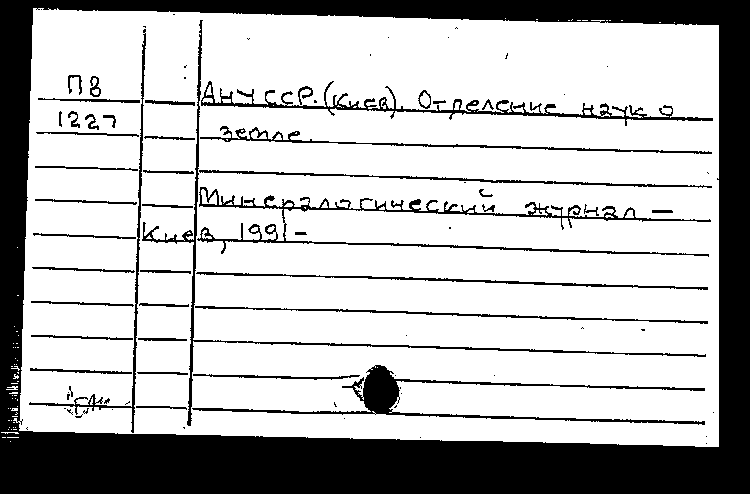 ПВ
1227
АНУССР. (Киев). Отделение наук о
земле.
Минералогический журнал —
Киев, 1991-